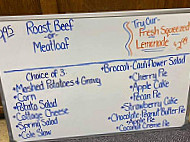 Roast Beef
or
Meatloaf
Try Our
Fresh Squeezed
Lemonade
Choice of 3
• Mashed Potatoes & Gravy
• Corn
• Potato Salad
• Cottage Cheese
• Spring Salad
• Cole Slaw
• Broccoli-Cauliflower Salad
• Cherry Pie
• Apple Cake
• Pecan Pie
• Strawberry Cake
• Chocolate Peanut Butter Pie
• Apple Pie
• Coconut Creme Pie